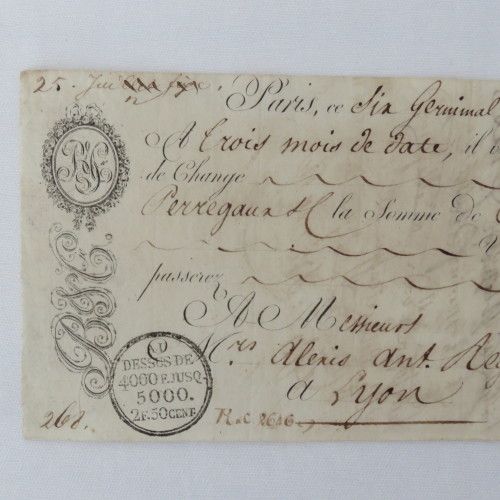 25. Jui
Paris, ce Six Germinal
A trois mois de date, il v
de Change
Perregaux & C la Somme de
passerez
A Messieurs
Mrs Alexis Ant. Re
a Lyon
DESSUS DE
4000 F. JUSQ.
5000.
2F. 50 CENT.
268.
R. C 2646